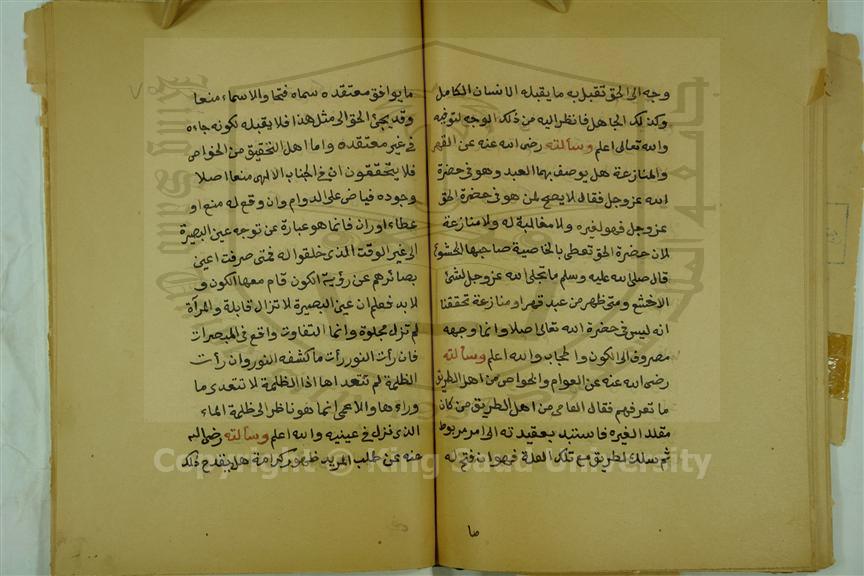 وجه الى الحق تقبل به ما يقبله الانسان الكامل
وكذلك الجاهل فانظر اليه من ذلك الوجه لتوفيه
والله تعالى اعلم وسألته رضى الله عنه عن القهر
والمنازعة هل يوصف بهما العبد وهو فى حضرة
الله عز وجل فقال لا يصح لمن هو فى حضرة الحق
عز وجل قهر لغيره ولا مغالبة له ولا منازعة
لان حضرة الحق تعطى بالخاصية صاحبها الخشوع
قال صلى الله عليه وسلم ما تجلى الله عز وجل لشئ
الا خشع ومتى ظهر من عبد قهر او منازعة تحققنا
انه ليس فى حضرة الله تعالى اصلا وانما وجهه
مصروف الى الكون والحجاب والله اعلم وسألته
رضى الله عنه عن العوام والخواص من اهل الطريق
ما تعرفهم فقال العامى من اهل الطريق من كان
مقلد الغيره فاستند بعقيدته الى امر مربوط
ثم سلك الطريق مع تلك العلة فهو ان فتح له
صا
ما يوافق معتقده سماه فتحا والاسماه منعا
وقد يجئ الحق الى مثل هذا فلا يقبله لكونه جاءه
فى غير معتقده واما اهل التحقيق من الخواص
فلا يتحققون ان فى الجناب الالهى منعا اصلا
وجوده فياض على الدوام وان وقع له منع او
عطاء او ران فانما هو عبارة عن توجه عين البصيرة
الى غير الوقت الذى خلقوا له فمتى صرفت اعين
بصائرهم عن رؤية الكون قام معها الكون و
لا بد فعلم ان عين البصيرة لا تزال قابلة والمرآة
لم تزل مجلوة وانما التفاوت واقع فى المبصرات
فان رأت النور رأت ما كشفه النور وان رأت
الظلمة لم تتعداها اذ الظلمة لا تتعدى ما
وراءها والاعمى انما هو ناظر الى ظلمة الماء
الذى نزل فى عينيه والله اعلم وسألته رضى الله
عنه عن طلب المريد ظهور كرامة هل يقدح ذلك
Copyright © King Saud University